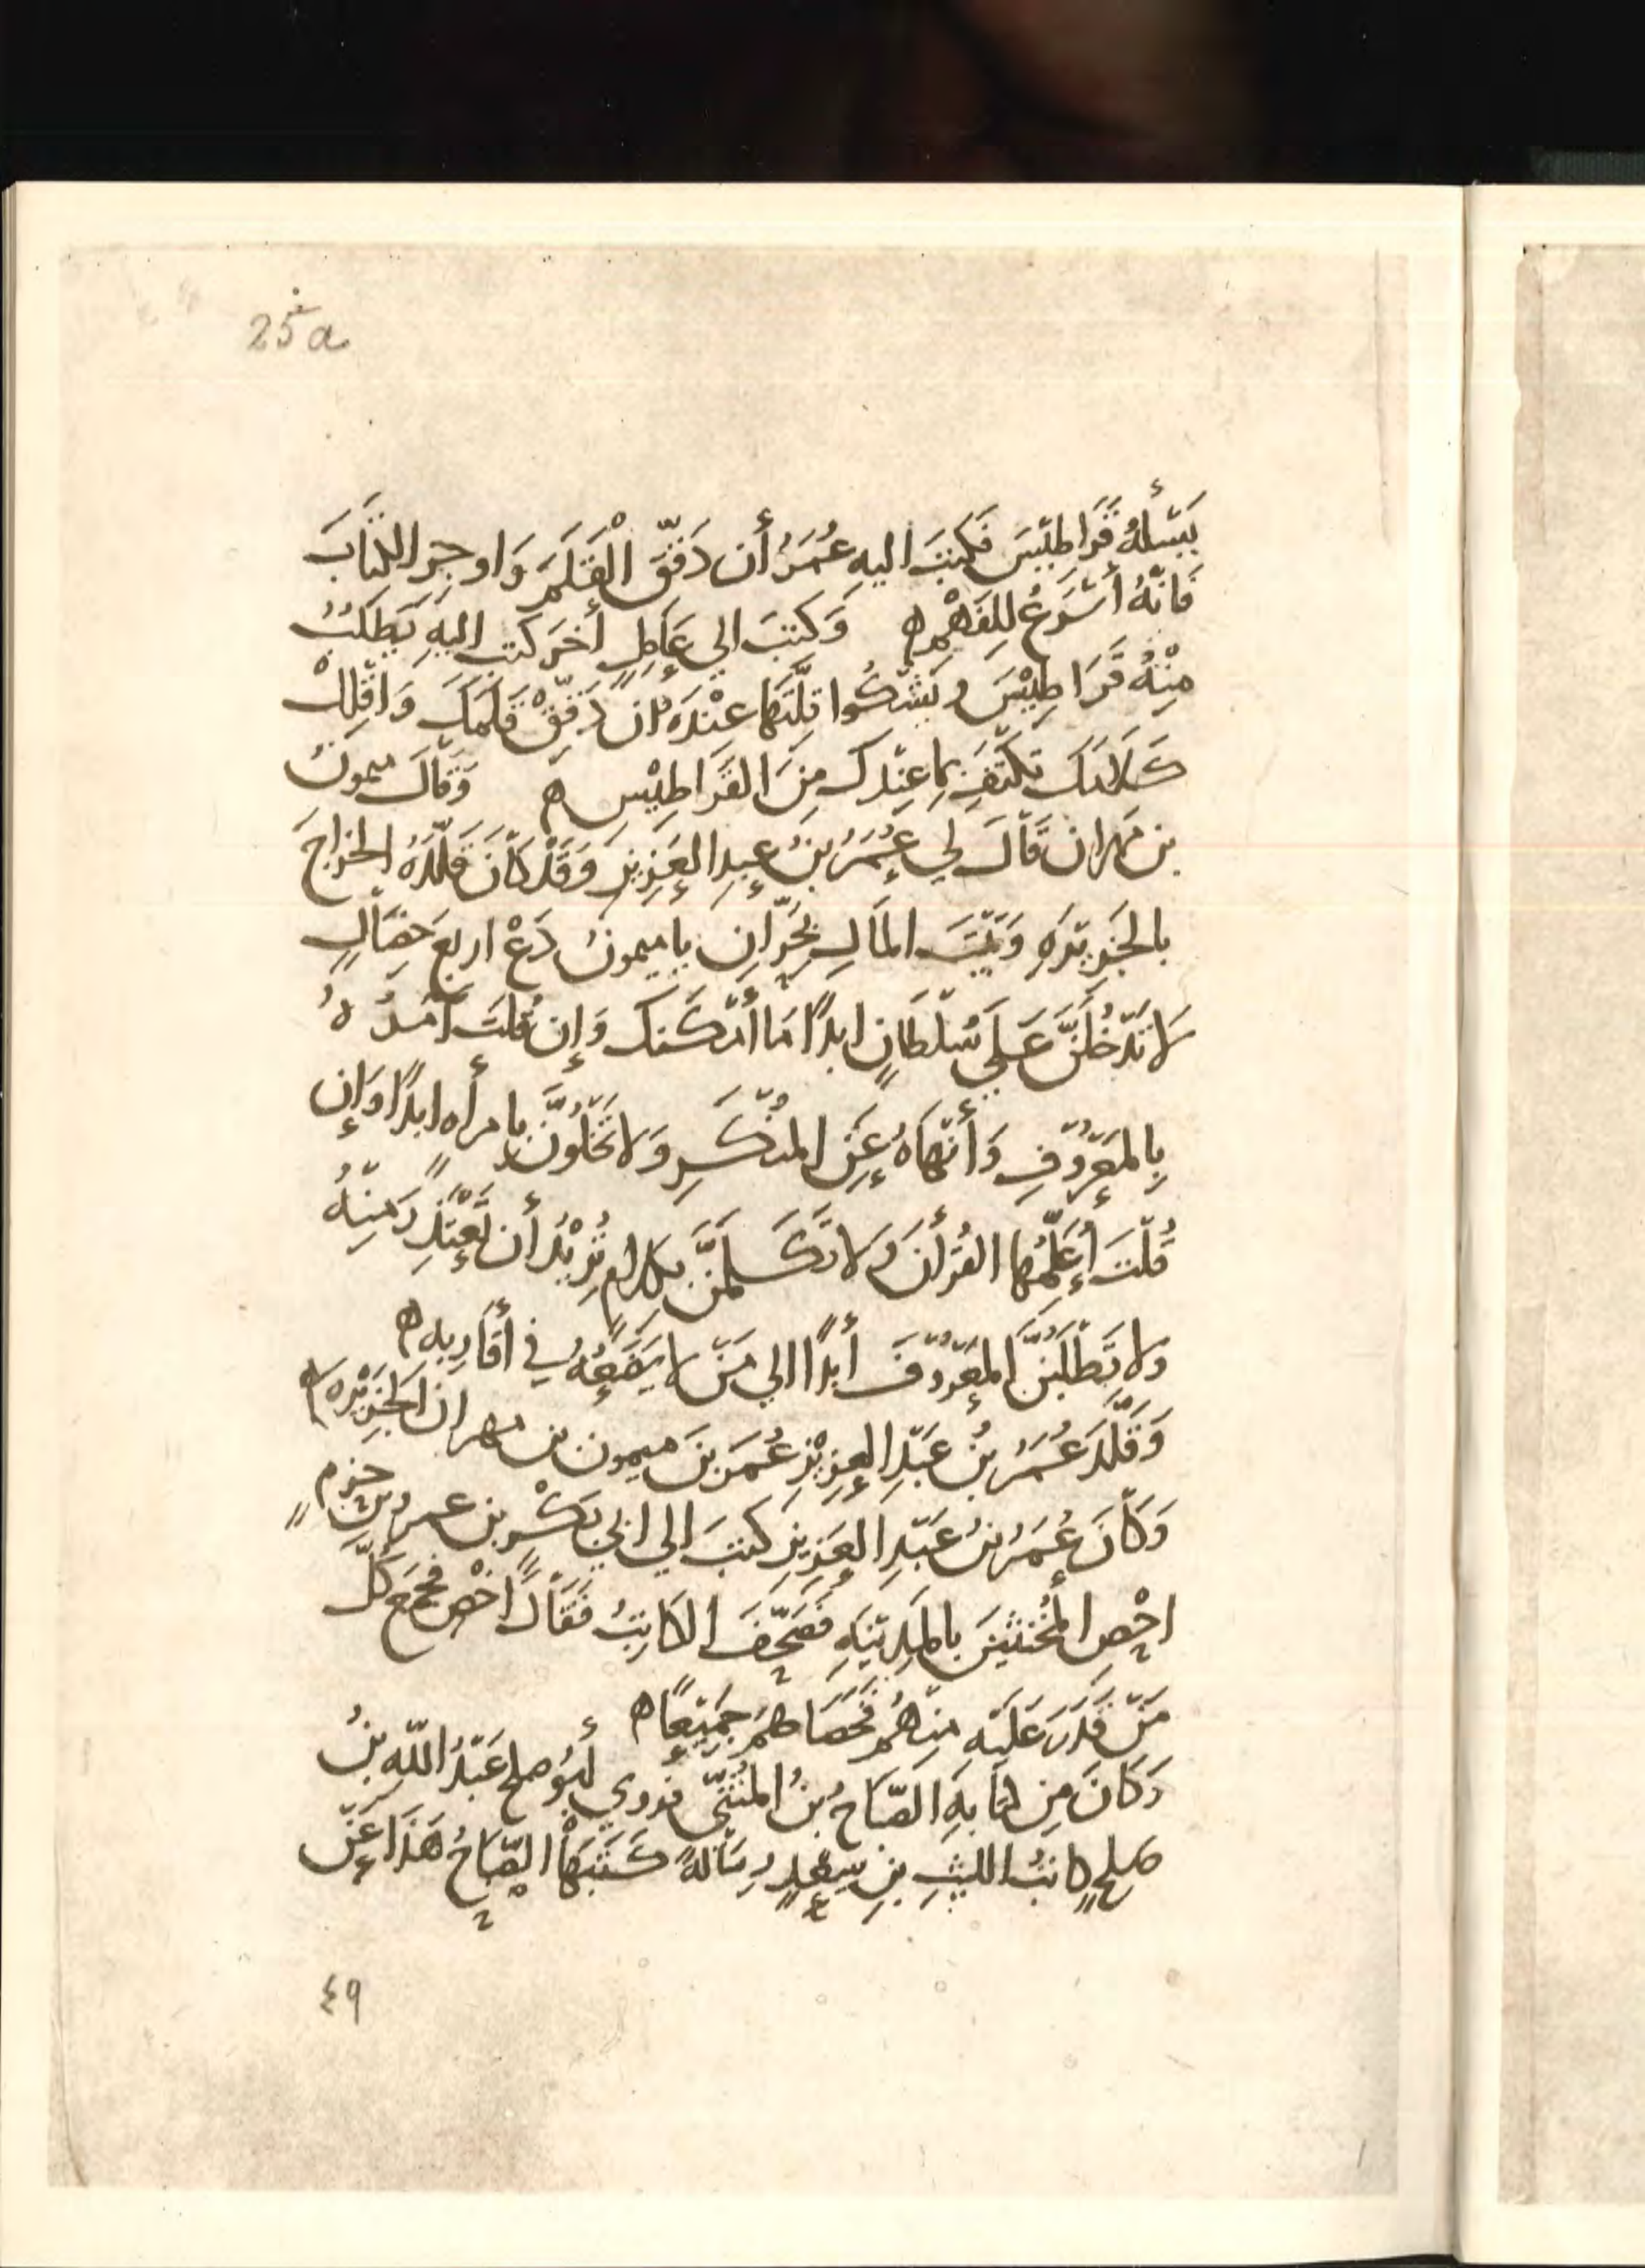 25a
يَسْأَلُهُ قَرَاطِيْسَ فَكَتبَ اليهِ عُمَرُ أن دَقِّقِ الْقَلَمَ وَاوجِزِ الكتَابَ
فَانَّهُ أسْرَعُ لِلفَهْمِ ه وَكتبَ الي عَامِلٍ أخَرَ كتب اليهِ يَطلُبُ
مِنْهُ قَرَاطِيْسَ ويَشْكُوا قِلَّتَهَا عنْدَهُ ان دَقِّقْ قَلَمَكَ وَاقْلِلْ
كَلَامَكَ تكْتَفِ بِمَا عِنْدكَ مِنَ القَرَاطِيْسِ ه وَقَالَ ميمونُ
بن مهران قَالَ لي عُمَرُ بنُ عبدِ العَزِيزِ وَقَدْ كَانَ قَلَّدَهُ الخراجَ
بالجَزِيرَهِ وَبَيْتَ المَالِ بِحَرَّانِ يا ميمونُ دَعْ اربع خصَالٍ
لا تَدْخُلَنَّ عَلَي سُلْطَانٍ ابدًا مَا أمْكَنكَ وَإن قُلتَ آمُرُهُ
بِالمَعْرُوْفِ وَأنْهَاهُ عَنِ المُنْكَرِ وَلا تَخْلُوَنَّ بامرأه ابدًا وَإن
قُلْتَ أُعَلِّمُهَا القُرأنَ ولا تَتَكَلَّمَنَّ بكلامٍ تُرِيْدُ أن تَعْتَذِرَ مِنْهُ
ولا تَطْلُبَنَّ المَعْرُوْفَ أبدًا الي مَنْ لا يَضَعُهُ في أقَارِبِه ه
وَقَلَّدَ عُمَرُ بنُ عَبْدِ العزِيْزِ عُمَرَ بنَ ميمون بن مهران الجَزِيْرَه ه
وَكَانَ عُمَرُ بنُ عَبْدِ العَزِيزِ كتبَ الي ابي بَكْرِ بن عمرو بن حزمٍ
احْصِ المُخنثينَ بالمَدِيْنَهِ فَصَحَّفَ الكَاتِبُ فَقَالَ اخْصِ فجمعَ كُلَّ
مَنْ قَدَرَ عَلَيْهِ مِنْهُم فَخَصَاهُم جَمِيْعًا ه
وَكَانَ مِن كتابهِ الصَّبَاحُ بنُ المُثَنَّي فروي أبُو صلح عَبْدُ اللهِ بنُ
صلحٍ كاتبُ الليثِ بنِ سَعْدٍ رِسَالةً كَتَبَهَا الصَّبَاحُ هَذَا عَنْ
٤٩